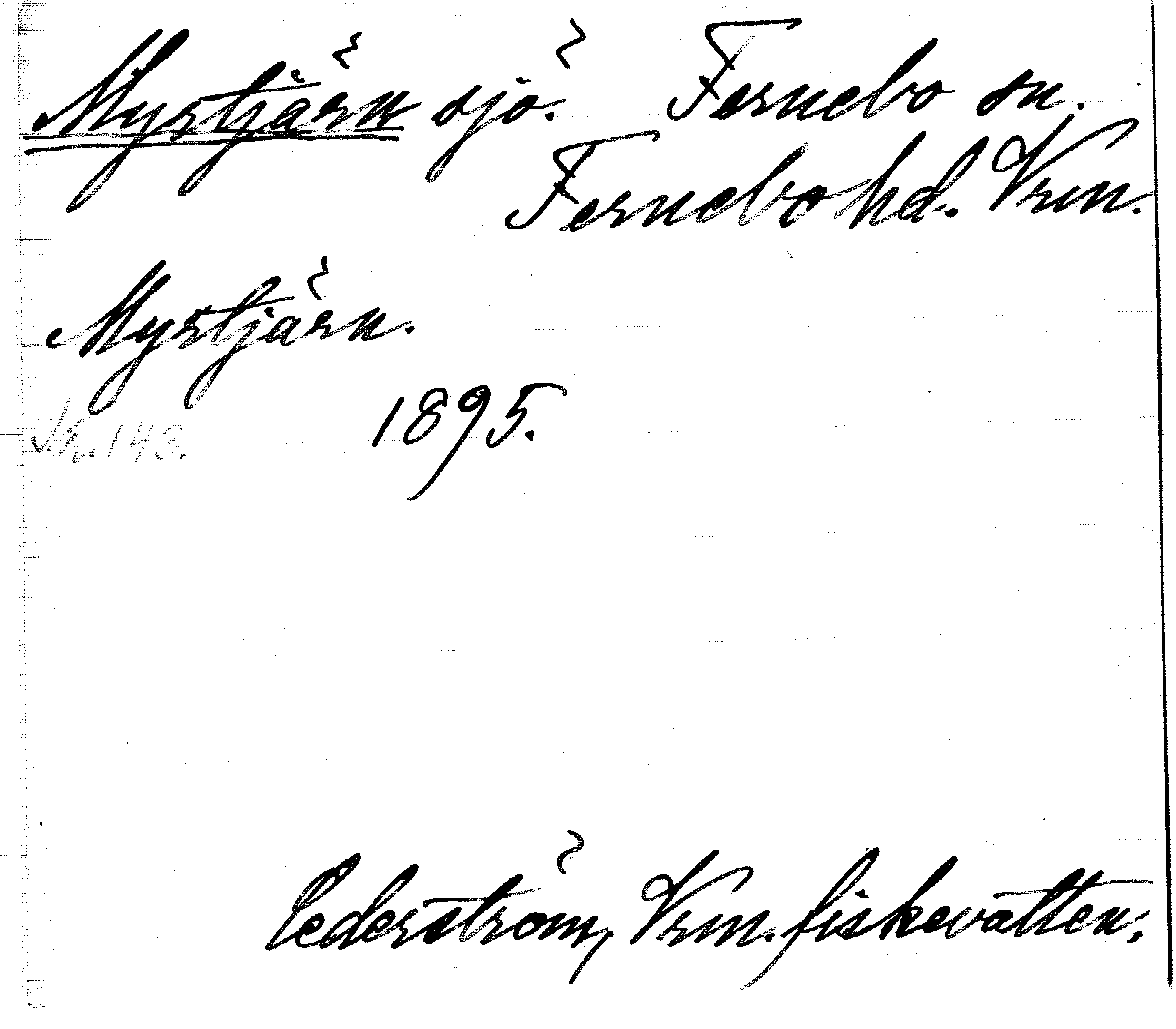 Myrtjärn sjö. Fernebo sn.
Fernebo hd. Vrm.
Myrtjärn.
1895.
Cederström, Vrm. fiskevatten;